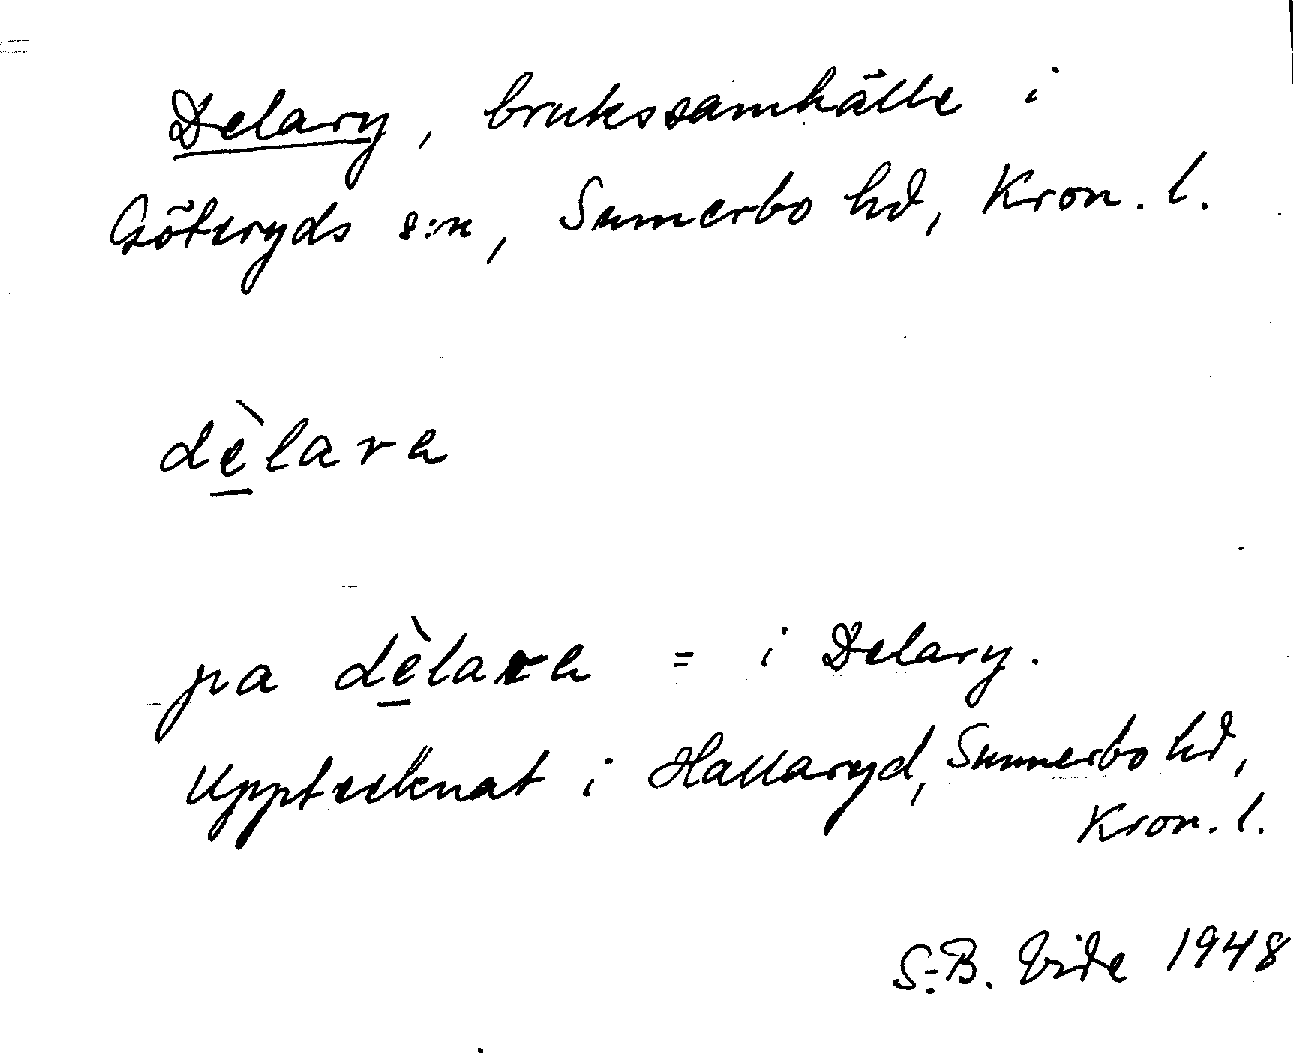 Delary, brukssamhälle i
Göteryds s:n, Sunnerbo hd, Kron. l.
dèlara
pa dèlara = i Delary.
Upptecknat i Hallaryd, Sunnerbo hd,
Kron. l.
S-B. Vide 1948